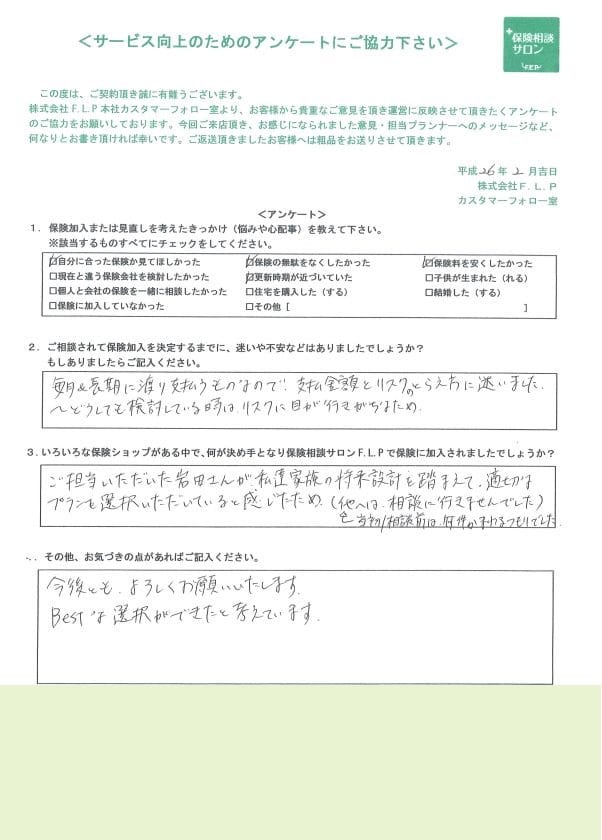 ＜サービス向上のためのアンケートにご協力下さい＞
+保険相談
サロン
F.L.P
この度は、ご契約頂き誠に有難うございます。
株式会社F.L.P本社カスタマーフォロー室より、お客様から貴重なご意見を頂き運営に反映させて頂きたくアンケート
のご協力をお願いしております。今回ご来店頂き、お感じになられました意見・担当プランナーへのメッセージなど、
何なりとお書き頂ければ幸いです。ご返送頂きましたお客様へは粗品をお送りさせて頂きます。
平成26年2月吉日
株式会社F.L.P
カスタマーフォロー室
＜アンケート＞
1．保険加入または見直しを考えたきっかけ（悩みや心配事）を教えて下さい。
※該当するものすべてにチェックをしてください。
☑自分に合った保険か見てほしかった ☑保険の無駄をなくしたかった ☑保険料を安くしたかった
□現在と違う保険会社を検討したかった ☑更新時期が近づいていた □子供が生まれた（れる）
□個人と会社の保険を一緒に相談したかった □住宅を購入した（する） □結婚した（する）
□保険に加入していなかった □その他 [ ]
2．ご相談されて保険加入を決定するまでに、迷いや不安などはありましたでしょうか？
もしありましたらご記入ください。
毎月&長期に渡り支払うものなので、支払金額とリスクのとらえ方に迷いました。
～どうしても検討している時は、リスクに目が行きがちなため。
3．いろいろな保険ショップがある中で、何が決め手となり保険相談サロンF.L.Pで保険に加入されましたでしょうか？
ご担当いただいた岩田さんが私達家族の将来設計を踏まえて、適切な
プランを選択いただいていると感じたため。（他へは、相談に行きませんでした）
当初/相談前は、何件かまわるつもりでした。
．その他、お気づきの点があればご記入ください。
今後とも、よろしくお願いいたします。
Bestな選択ができたと考えています。